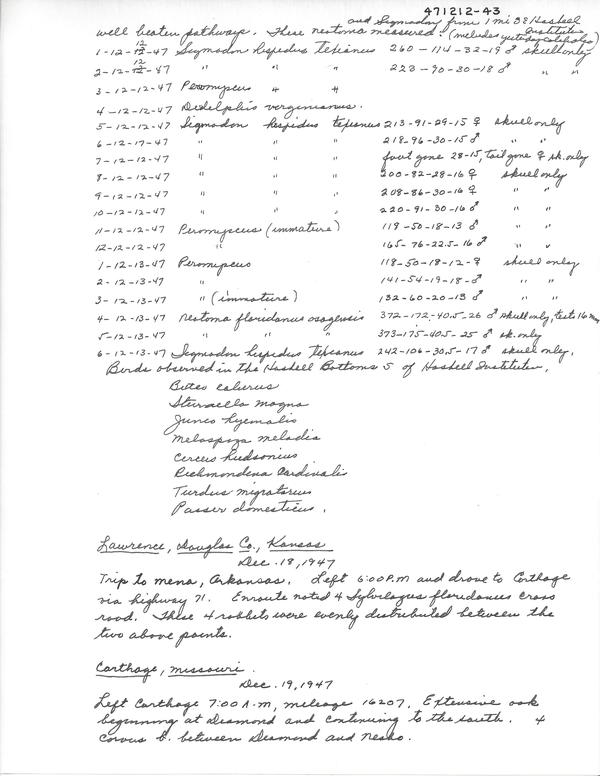 471212-43
and Sigmodon from 1 mi SE Haskell Institute
well beaten pathways. These neotoma measured: (includes yesterdays catches)
1-12-12-47 Sigmodon hispidus texianus 260-114-32-19 ♂ skull only
2-12-12-47 " " " 223-90-30-18 ♂ " "
3-12-12-47 Peromyscus " "
4-12-12-47 Didelphis verginianus.
5-12-12-47 Sigmodon hespidus texianus 213-91-29-15 ♀ skull only
6-12-17-47 " " " 218-96-30-15 ♂
7-12-12-47 " " " foot gone 28-15, tail gone ♀ sk. only
8-12-12-47 " " " 200-82-28-16 ♀ skull only
9-12-12-47 " " " 208-86-30-16 ♀ " "
10-12-12-47 " " " 220-91-30-16 ♂ " "
11-12-12-47 Peromyscus (immature) 119-50-18-13 ♂ " "
12-12-12-47 " 165-76-22.5-16 ♂ " "
1-12-13-47 Peromyscus 118-50-18-12-♀ skull only
2-12-13-47 " 141-54-19-18-♂ " "
3-12-13-47 " (immature) 132-60-20-13 ♂ " "
4-12-13-47 neotoma floridanus osagensis 372-172-40.5-26 ♂ skull only, tests 16 mm
5-12-13-47 " " " 373-175-40.5-25 ♂ sk. only
6-12-13-47 Sigmodon hispidus texianus 242-106-30.5-17 ♂ skull only.
Birds observed in the Haskell Bottoms S of Haskell Institute,
Buteo calurus
Sturnella magna
Junco hyemalis
Melospiza melodia
Circus hudsonius
Richmondena Cardinalis
Turdus migratorius
Passer domesticus.
Lawrence, Douglas Co., Kansas
Dec. 18, 1947
Trip to mena, Arkansas. Left 6:00 P.M and drove to Carthage
via highway 71. Enroute noted 4 Sylvilagus floridanus cross
road. These 4 rabbits were evenly distributed between the
two above points.
Carthage, missouri.
Dec. 19, 1947
Left Carthage 7:00 A.M, mileage 16207. Extensive oak
beginning at Diamond and continuing to the south. 4
Corvus b. between Diamond and Neosho.